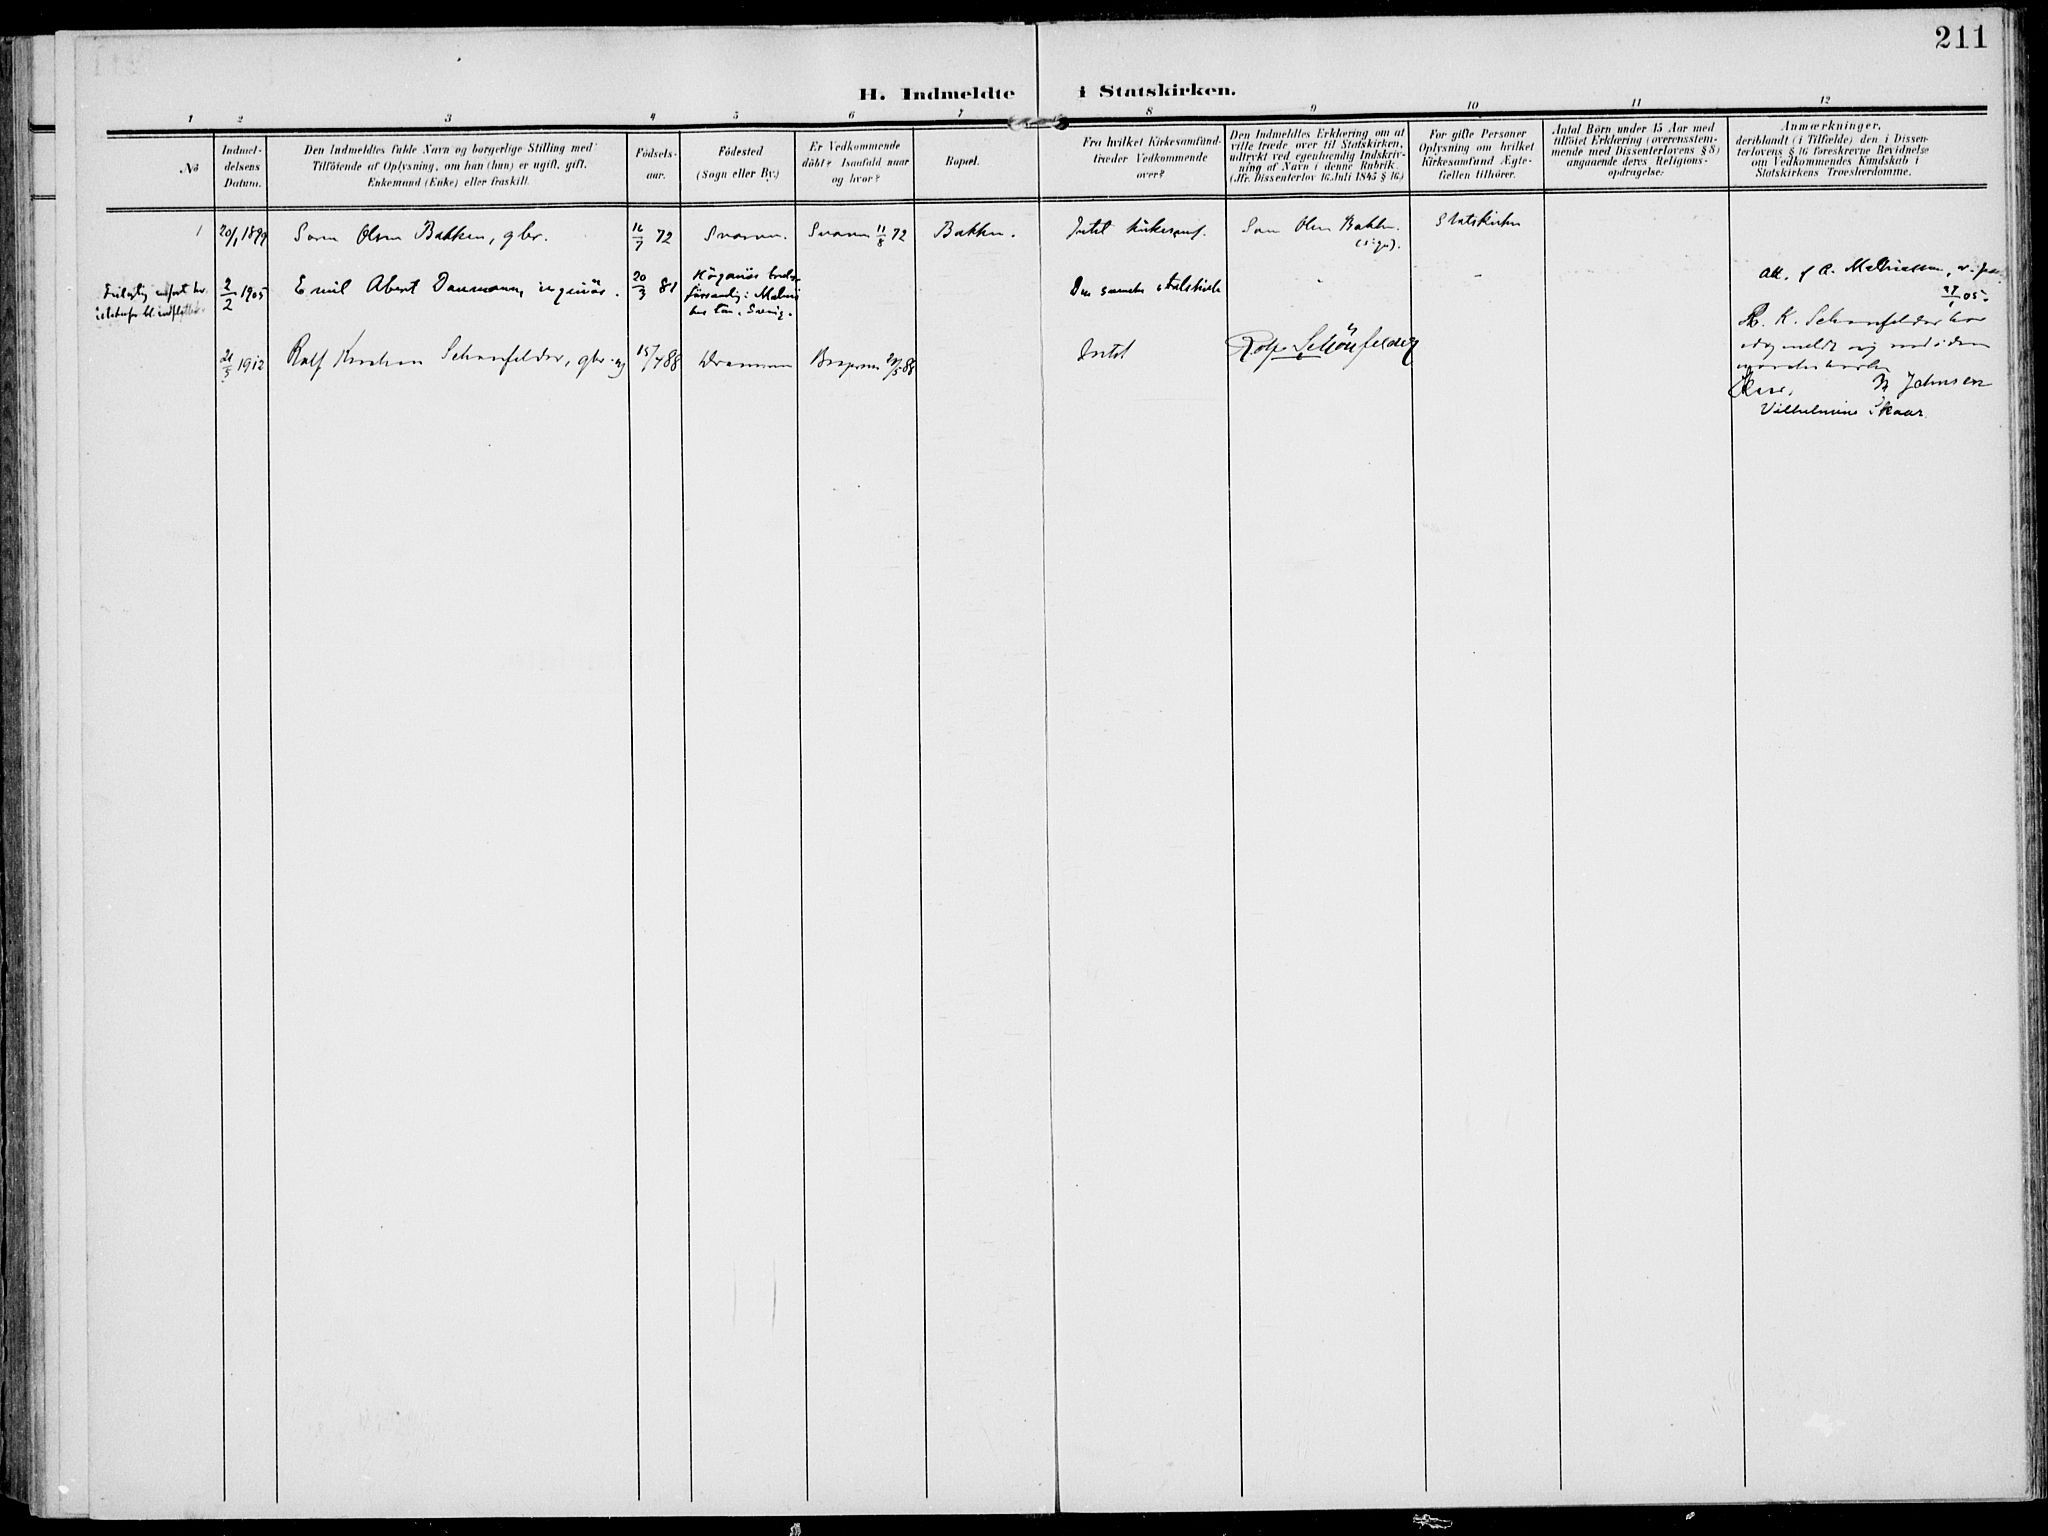 211
H. Indmeldte i Statskirken.
1 2 3 4 5 6 7 8 9 10 11 12
No
Indmel-
delsens
Datum.
Den Indmeldtes fulde Navn og borgerlige Stilling med
Tilföiende af Oplysning, om han (hun) er ugift, gift,
Enkemand (Enke) eller fraskilt.
Födsels-
aar.
Födested
(Sogn eller By.)
Er Vedkommende
döbt? Isaafald naar
og hvor?
Bopæl.
Fra hvilket Kirkesamfund
træder Vedkommende
over?
Den Indmeldtes Erklæring om at
ville træde over til Statskirken,
udtrykt ved egenhændig Indskriv-
ning af Navn i denne Rubrik.
(Jfr. Dissenterlov 16. Juli 1845 § 16.)
For gifte Personer
Oplysning om hvilket
Kirkesamfund Ægte-
fællen tilhörer.
Antal Börn under 15 Aar med
tilföiet Erklæring (overensstem-
mende med Dissenterlovens § 8)
angaaende deres Religions-
opdragelse.
Anmærkninger,
deriblandt (i Tilfælde) den i Dissen-
terlovens § 16 foreskrevne Bevidnelse
om Vedkommendes Kundskab i
Statskirkens Troeslærdomme.
1 20/1 1899 Olsen Bakken, gbr. 16/7 72 Snarum. Snarum 11/8 72 Bakken. Intet kirkesamf. Olsen Bakken. Statskirken
(sign).
2/2 1905 Emil Albert Danmann, ingeniör. 20/3 81 Höganäs
Malmö
Sverig.
Den svenske statskirke
Att. f A. Mathiassen,
27/1 05.
21/5 1912 Rolf Schönfelder, gbr. 15/4 88 Drammen Bragernes 88 Intet Rolf Schönfelder
R. K. Schönfelder har
Johnsen
Vilhelmine Skaar.